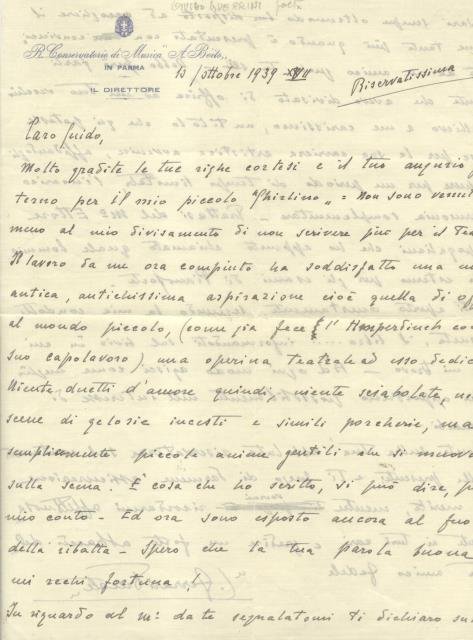 GUIDO GUERRINI
R. Conservatorio di Musica "A. Boito"
IN PARMA
IL DIRETTORE
10 ottobre 1939 XVII
Riservatissima
Caro Guido,
Molto gradite le tue righe cortesi e il tuo augurio f
terno per il mio piccolo "Ghirlino" = Non sono venuto
meno al mio divisamento di non scrivere più per il Tea
Il lavoro da me ora compiuto ha soddisfatto una m
antica, antichissima aspirazione cioè quella di of
al mondo piccolo, (come già fece l'Humperdinck co
suo capolavoro), una operina teatrale ad esso dedic
Niente duetti d'amore quindi, niente sciabolate, ne
scene di gelosie incesti e simili porcherie, ma
semplicemente piccole anime gentili che si muovo
sulla scena. È cosa che ho scritto, si può dire, pe
mio conto - Ed ora sono esposto ancora al fuo
della ribalta - Spero che la tua parola buona
mi rechi fortuna!
In riguardo al m° da te segnalatomi ti dichiaro su